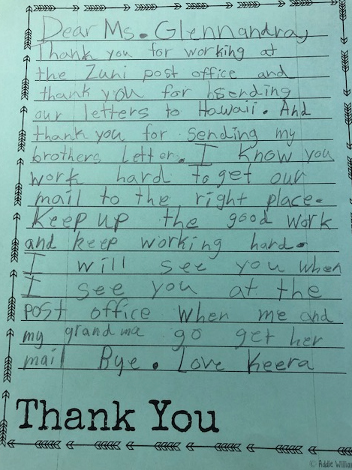 Dear Ms. Glennandra,
Thank you for working at
the Zuni post office and
thank you for sending
our letters to Hawaii. And
thank you for sending my
brothers letter. I know you
work hard to get our
mail to the right place.
Keep up the good work
and keep working hard.
I will see you when
I see you at the
post office when me and
my grandma go get her
mail Bye. Love Keera
Thank You
© Addie Willia